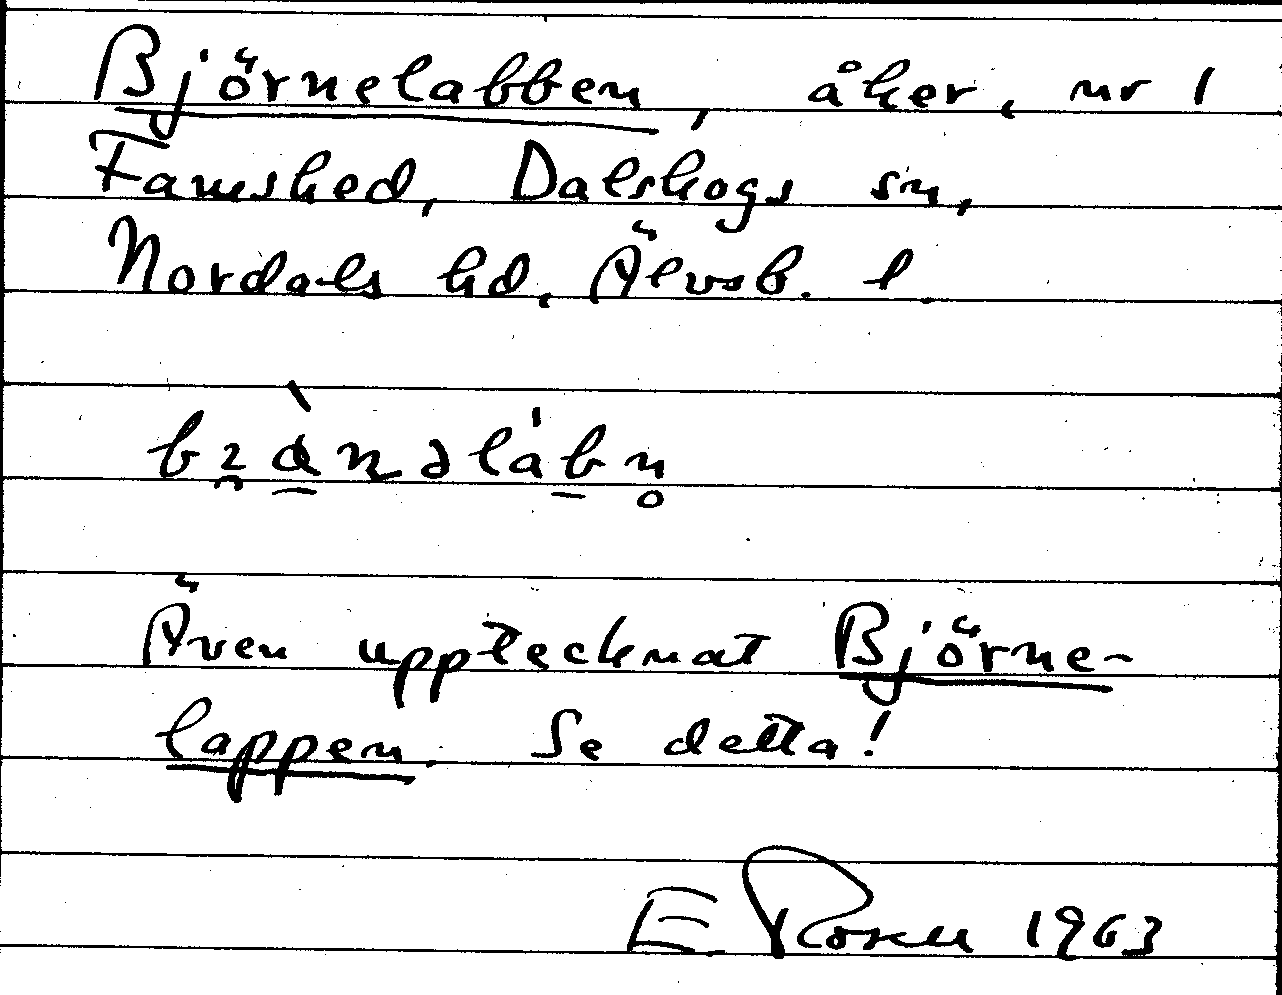 Björnelabben, åker, nr 1
Famshed, Dalskogs sn,
Nordals hd, Älvsb. l.
Även upptecknat Björne-
lappen. Se detta!
E Rosell 1963